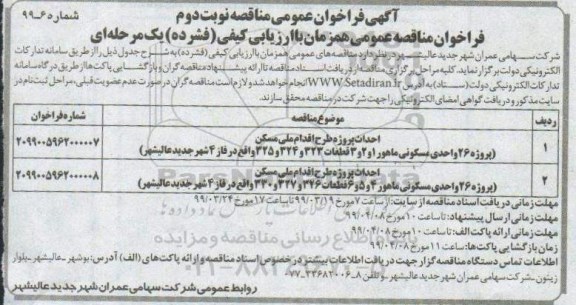 شماره ۶۰-۹۹
آگهی فراخوان عمومی مناقصه نوبت دوم
فراخوان مناقصه عمومی همزمان با ارزیابی کیفی (فشرده) یک مرحله‌ای
شرکت سهامی عمران شهر جدید عالیشهر در نظر دارد مناقصه‌های عمومی همزمان با ارزیابی کیفی (فشرده) به شرح جدول ذیل را از طریق سامانه تدارکات
الکترونیکی دولت برگزار نماید. کلیه مراحل برگزاری مناقصه از دریافت اسناد مناقصه تا ارائه پیشنهاد مناقصه‌گران و بازگشایی پاکت‌ها از طریق درگاه سامانه
تدارکات الکترونیکی دولت (ستاد) به آدرس WWW.Setadiran.Ir انجام خواهد شد و لازم است مناقصه گران در صورت عدم عضویت قبلی، مراحل ثبت نام در
سایت مذکور و دریافت گواهی امضای الکترونیکی را جهت شرکت در مناقصه محقق سازند.
ردیف موضوع مناقصه شماره فراخوان
۱ احداث پروژه طرح اقدام ملی مسکن (پروژه ۲۶ واحدی مسکونی ماهور ۱و۲و۳ قطعات ۳۲۳ و ۳۲۴ و ۳۲۵ واقع در فاز ۴ شهر جدید عالیشهر) ۲۰۹۹۰۰۵۹۶۲۰۰۰۰۰۷
۲ احداث پروژه طرح اقدام ملی مسکن (پروژه ۲۶ واحدی مسکونی ماهور ۴و۵و۶ قطعات ۳۲۶ و ۳۲۷ و ۳۳۰ واقع در فاز ۴ شهر جدید عالیشهر) ۲۰۹۹۰۰۵۹۶۲۰۰۰۰۰۸
مهلت زمانی دریافت اسناد مناقصه از سایت: از ساعت ۷ مورخ ۹۹/۰۳/۱۹ تا ساعت ۱۷ مورخ ۹۹/۰۳/۲۴
مهلت زمانی ارسال پیشنهاد: تا ساعت ۱۰ مورخ ۹۹/۰۴/۰۸
مهلت زمانی ارائه پاکت الف: تا ساعت ۱۰ مورخ ۹۹/۰۴/۰۸
زمان بازگشایی پاکت‌ها: ساعت ۱۱ مورخ ۹۹/۰۴/۰۸
اطلاعات تماس دستگاه مناقصه گزار جهت دریافت اطلاعات بیشتر در خصوص اسناد مناقصه و ارائه پاکت‌های (الف) آدرس: بوشهر - عالیشهر - بلوار
زیتون - شرکت سهامی عمران شهر جدید عالیشهر - تلفن ۸-۳۳۶۸۲۰۰۶-۰۷۷
روابط عمومی شرکت سهامی عمران شهر جدید عالیشهر